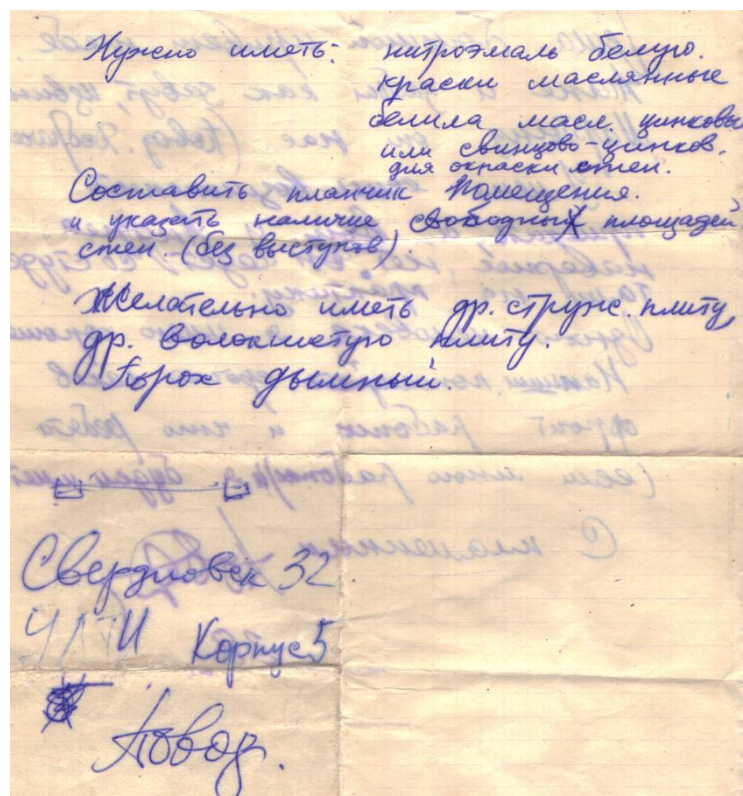 Нужно иметь: нитроэмаль белую.
краски маслянные
белила масл. цинковы
или свинцово-цинков.
для окраски стен.
Составить планчик помещения.
и указать наличие свободных площадей
стен. (без выступов).
Желательно иметь др. струж. плиту,
др. волокнистую плиту.
Порох дымный.
Свердловск 32
УПИ Корпус 5